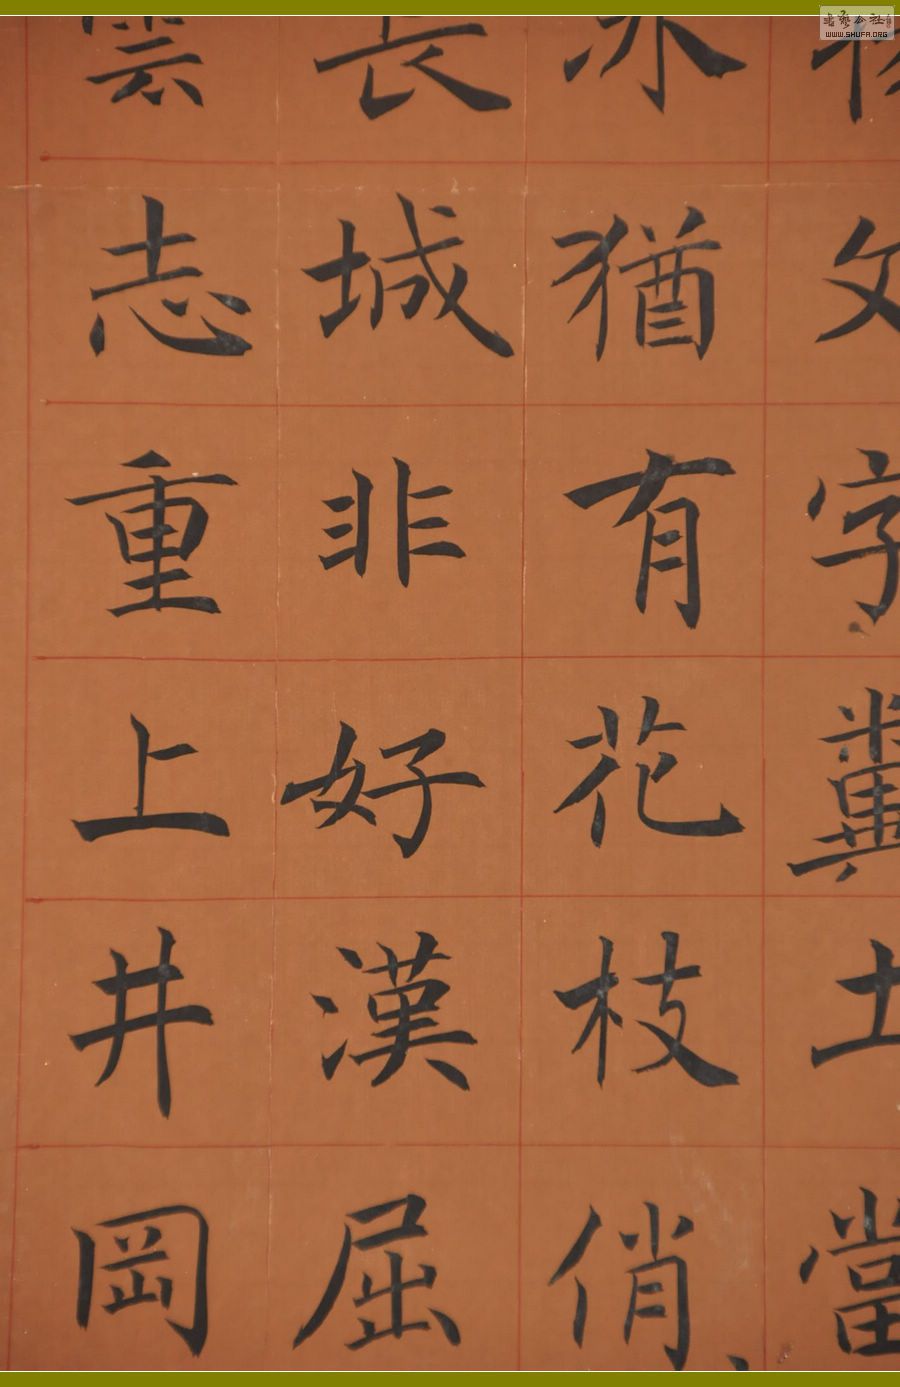 書藝公社
WWW.SHUFA.ORG
揚文字糞土當
冰猶有花枝俏
長城非好漢屈
雲志重上井岡